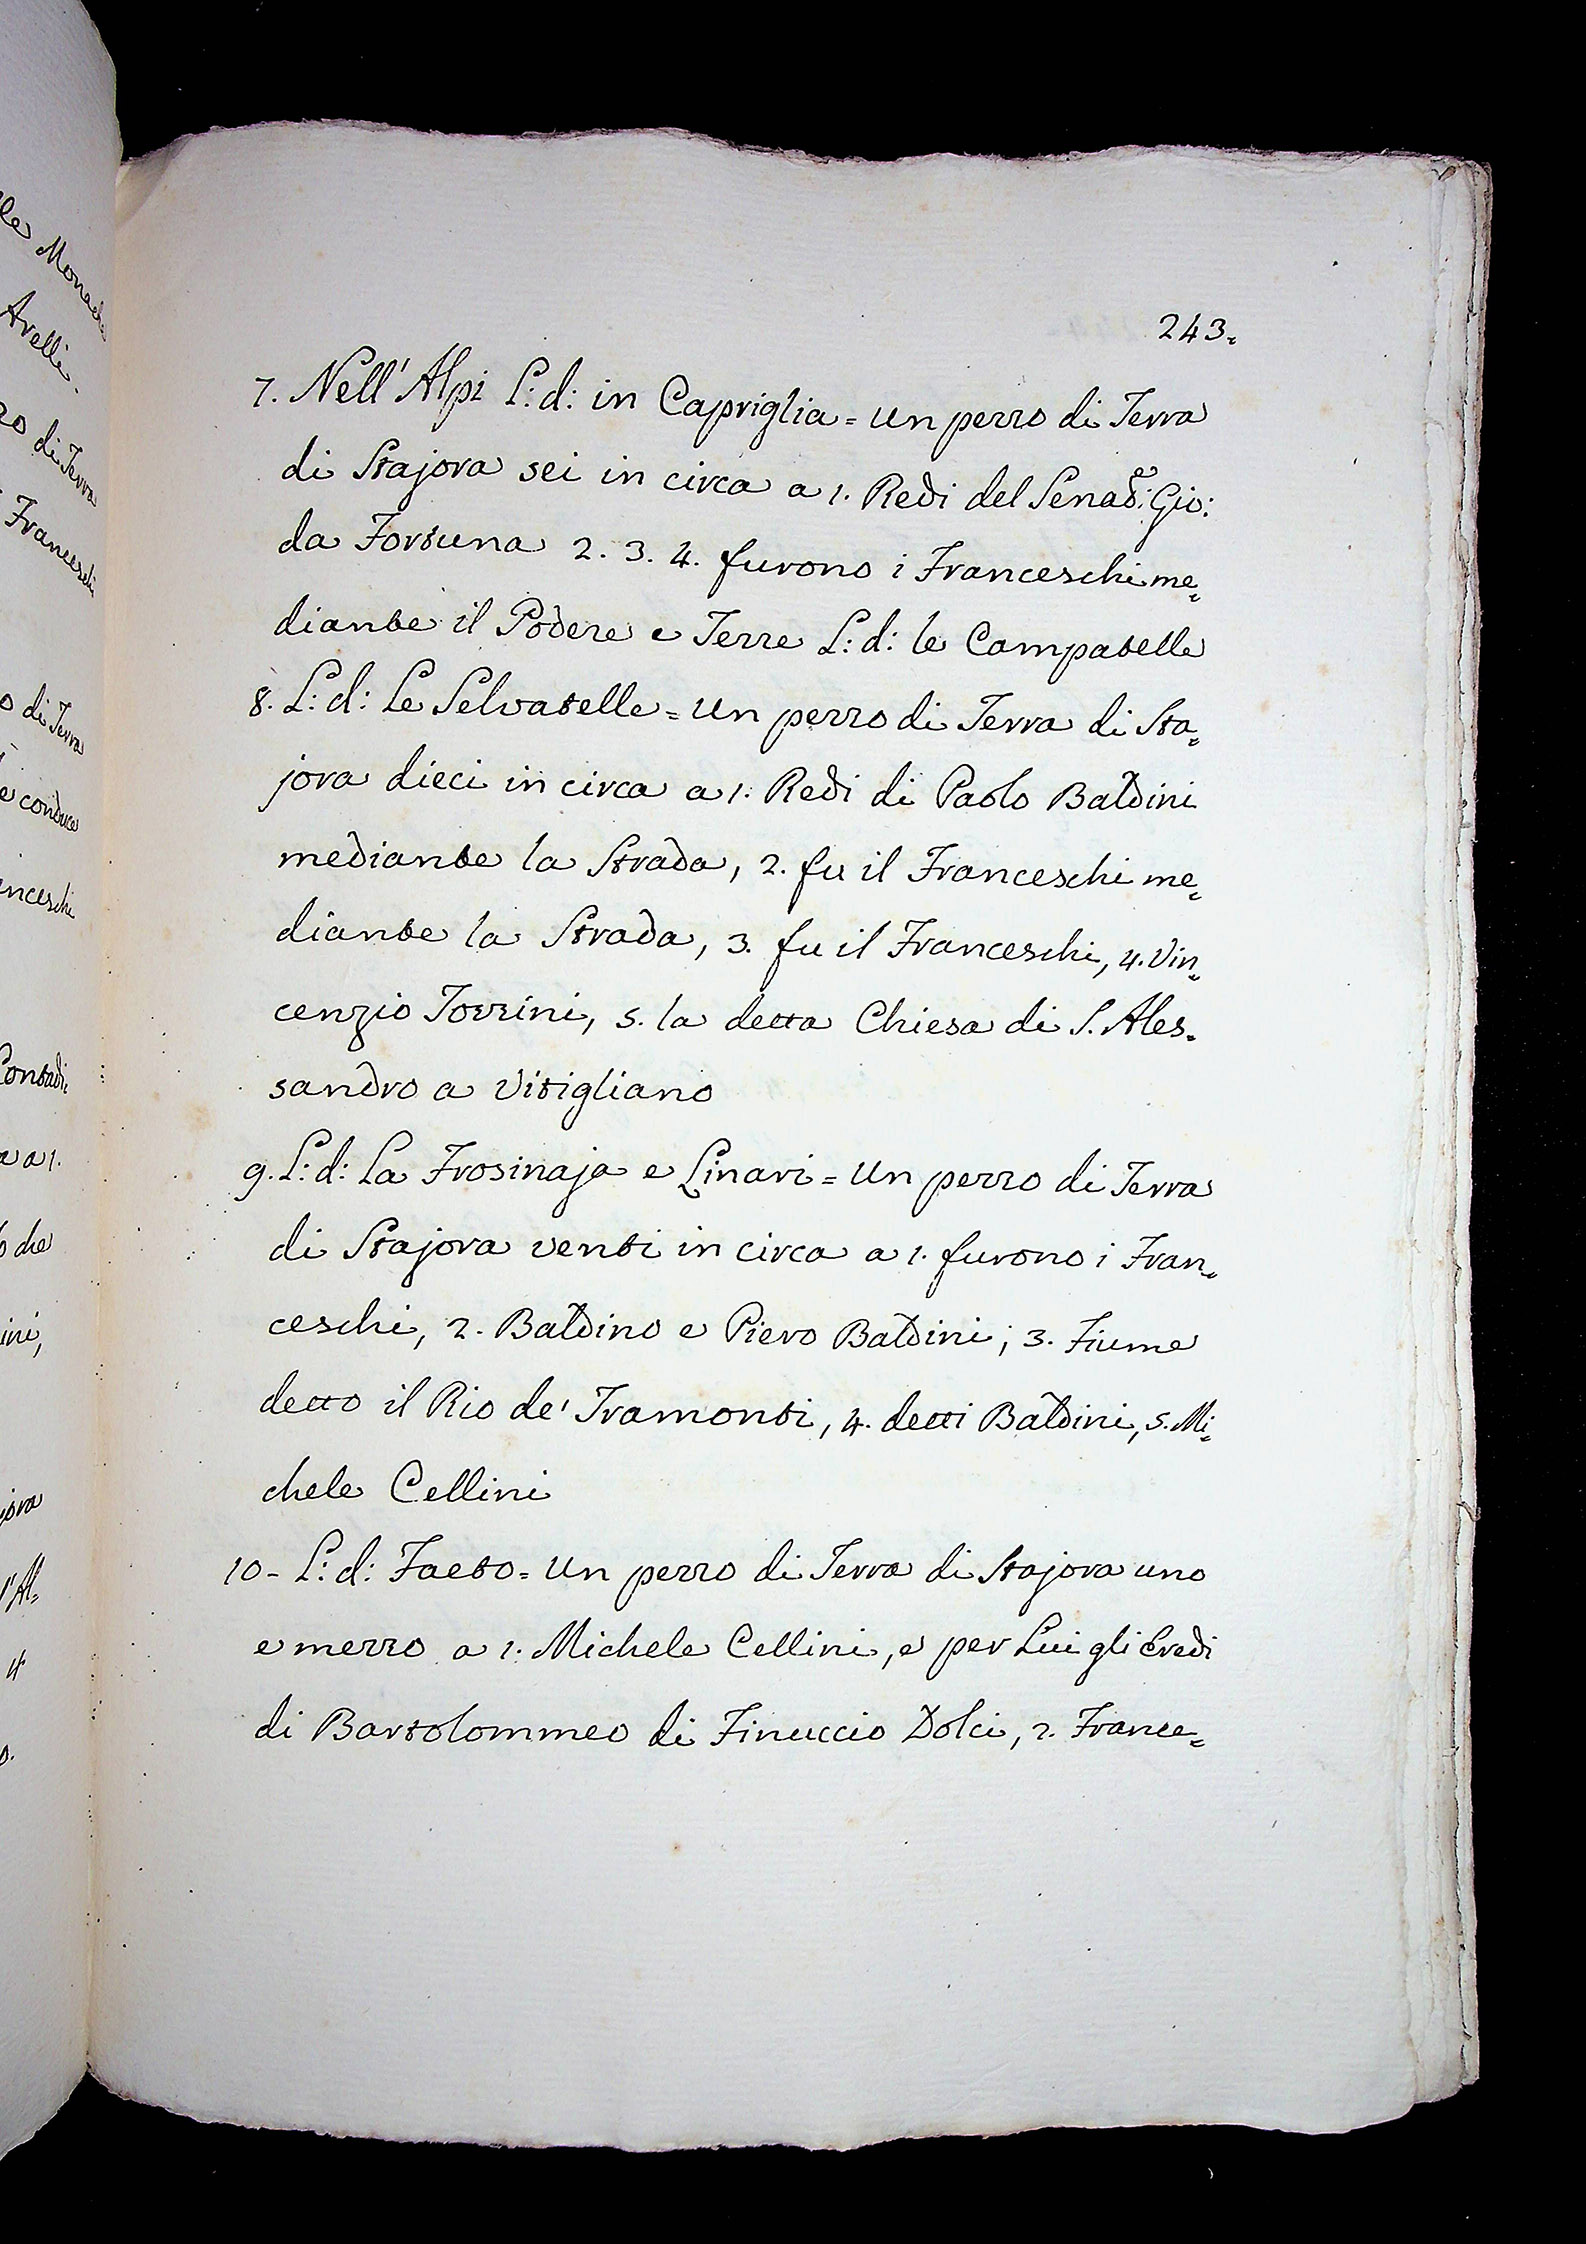 243.
7. Nell'Alpi L: d: in Capriglia = Un pezzo di Terra
di Stajora sei in circa a 1. Redi del Senat.e: Gio:
da Fortuna 2. 3. 4. furono i Franceschi me=
diante il Podere e Terre L: d: le Campatelle
8. L: d: Le Selvatelle = Un pezzo di Terra di Sta=
jora dieci in circa a 1. Redi di Paolo Baldini
mediante la Strada, 2. fu il Franceschi me=
diante la Strada, 3. fu il Franceschi, 4. Vin=
cenzio Torrini, 5. la detta Chiesa di S. Ales=
sandro a Vitigliano
9. L: d: La Frosinaja e Linari = Un pezzo di Terra
di Stajora venti in circa a 1. furono i Fran=
ceschi, 2. Baldino e Piero Baldini; 3. Fiume
detto il Rio de' Tramonti, 4. detti Baldini, 5. Mi=
chele Cellini
10 - L: d: Faeto = Un pezzo di Terra di Stajora uno
e mezzo a 1. Michele Cellini, e per Lui gli Eredi
di Bartolommeo di Finuccio Dolci, 2. France=